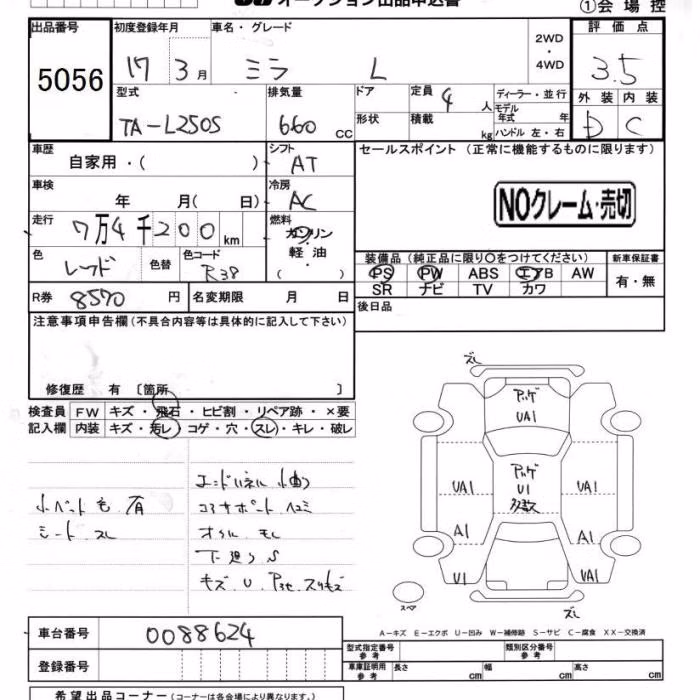 オークション出品申込書
①会場控
出品番号 初度登録年月 車名・グレード 評価点
5056 17 3月 ミラ L 2WD・4WD 3.5
型式 排気量 ドア 定員 4人 ディーラー・並行 外装 内装
TA-L250S 660cc 形状 積載 kg モデル年式 年 ハンドル 左・右 D C
車歴 自家用・( ) シフト AT セールスポイント (正常に機能するものに限ります)
車検 年 月( 日) 冷房 AC
NOクレーム・売切
走行 7万4千200km 燃料 ガソリン
軽油
( )
色 レッド 色替 色コード R38
装備品 (純正品に限り○をつけてください) 新車保証書
PS PW ABS エアB AW 有・無
SR ナビ TV カワ
R券 8570円 名変期限 月 日
後日品
注意事項申告欄(不具合内容等は具体的に記入して下さい)
修復歴 有 〔箇所 〕
検査員 FW キズ・飛石・ヒビ割・リペア跡・×要
記入欄 内装 キズ・汚レ・コゲ・穴・スレ・キレ・破レ
小ペット毛 有
シート スレ
エンドパネル 小曲
コアサポート ヘコミ
オイル モレ
下廻り S
キズ U
ズレ
アッゲ
UA1
アッゲ
U1
多数
UA1 UA1
A1 A1
U1 UA1
スペア
ズレ
A－キズ E－エクボ U－凹み W－補修跡 S－サビ C－腐食 XX－交換済
車台番号 0088624
登録番号
型式指定番号 参考 類別区分番号 参考
車庫証明用 参考 長さ cm 幅 cm 高さ cm
希望出品コーナー (コーナーは各会場により異なります。)